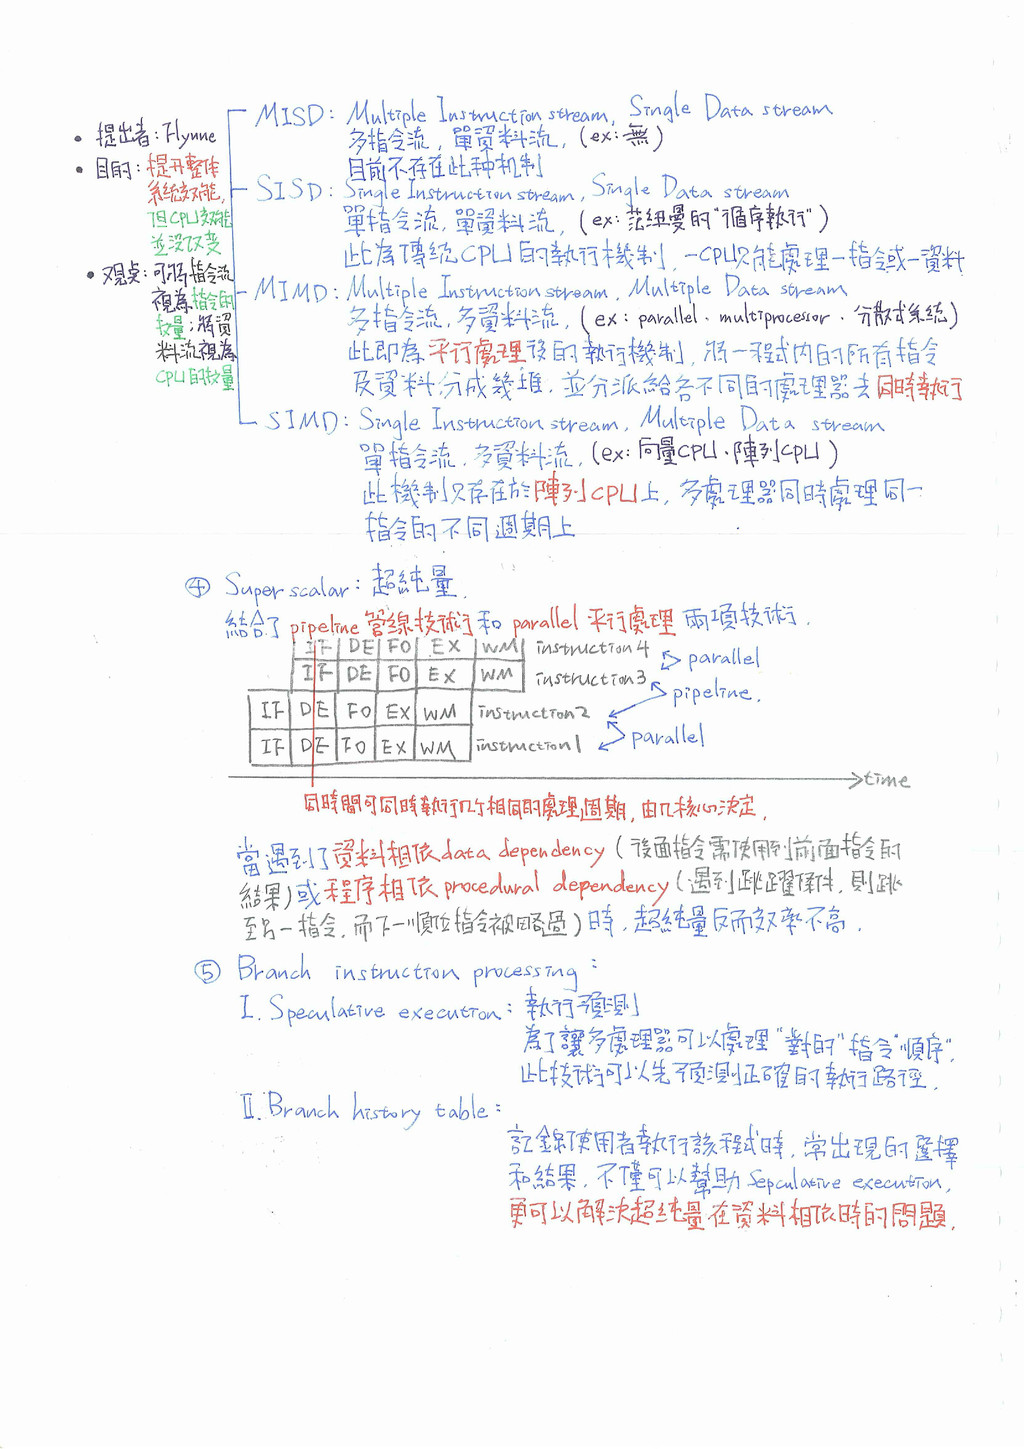 • 提出者：Flynne
• 目的：提升整体
系統效能,
但CPU效能
並沒改变
• 观桌：可將指令流
視為指令的
數量；將資
料流視為
CPU的數量
MISD: Multiple Instruction stream, Single Data stream
多指令流, 單資料流, (ex:無)
目前不存在此种机制
SISD: Single Instruction stream, Single Data stream
單指令流, 單資料流, (ex:范紐曼的"循序執行")
此為傳統CPU的執行機制, 一CPU只能處理一指令或一資料
MIMD: Multiple Instruction stream, Multiple Data stream
多指令流, 多資料流, (ex: parallel、multiprocessor、分散式系統)
此即為平行處理後的執行機制, 將一程式内的所有指令
及資料分成幾堆, 並分派給各不同的處理器去同時執行
SIMD: Single Instruction stream, Multiple Data stream
單指令流, 多資料流, (ex:向量CPU、陣列CPU)
此機制只存在於陣列CPU上, 多處理器同時處理同一
指令的不同週期上
④ Super scalar: 超純量.
結合了pipeline管線技術和parallel平行處理兩項技術.
IF DE FO EX WM instruction4
IF DE FO EX WM instruction3
parallel
pipeline.
IF DE FO EX WM instruction2
IF DE FO EX WM instruction1
parallel
time
同時間可同時執行几个相同的處理週期, 由几核心決定.
當遇到了資料相依data dependency (後面指令需使用到前面指令的
結果)或程序相依procedural dependency(遇到跳躍條件, 則跳
至另一指令, 而下一順位指令被略過)時, 超純量反而效率不高.
⑤ Branch instruction processing:
I. Speculative execution: 執行預測
為了讓多處理器可以處理"對的"指令"順序",
此技術可以先預測正確的執行路徑.
II. Branch history table:
記錄使用者執行該程式時, 常出現的選擇
和結果, 不僅可以幫助Sepculative execution,
更可以解決超純量在資料相依時的問題.